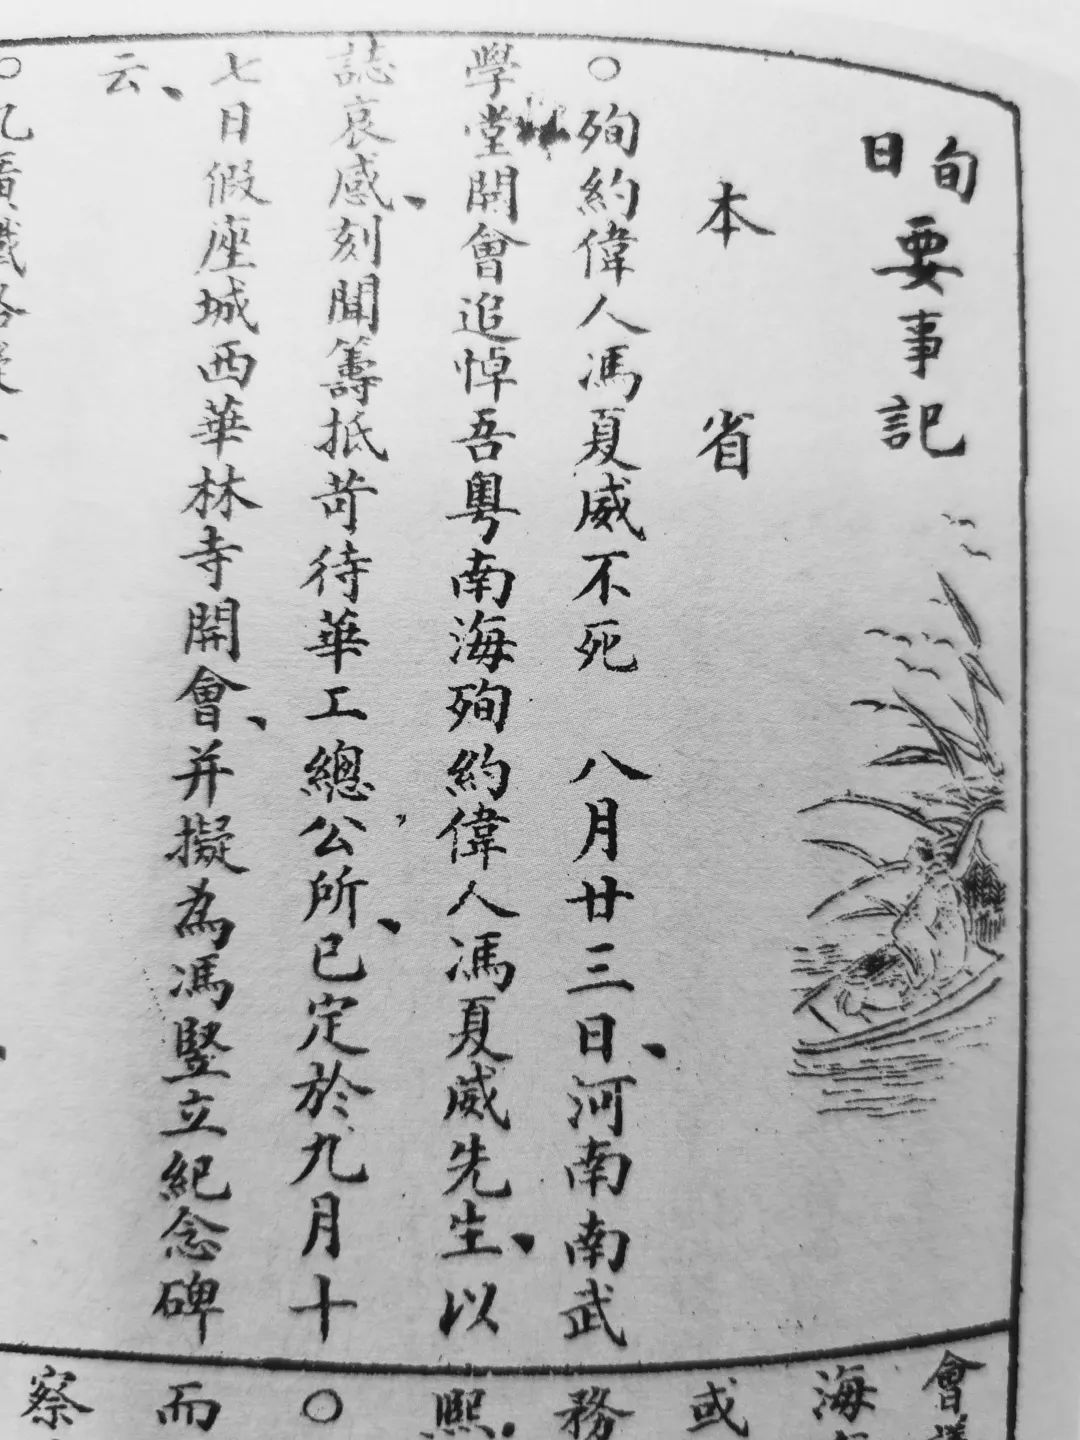 旬日要事記
本省
○殉約偉人馮夏威不死　八月廿三日、河南南武
學堂開會追悼吾粵南海殉約偉人馮夏威先生、以
誌哀感、刻聞籌抵苛待華工總公所、已定於九月十
七日假座城西華林寺開會、并擬為馮竪立紀念碑
云、
會
海
或
務
熙
○
而
察